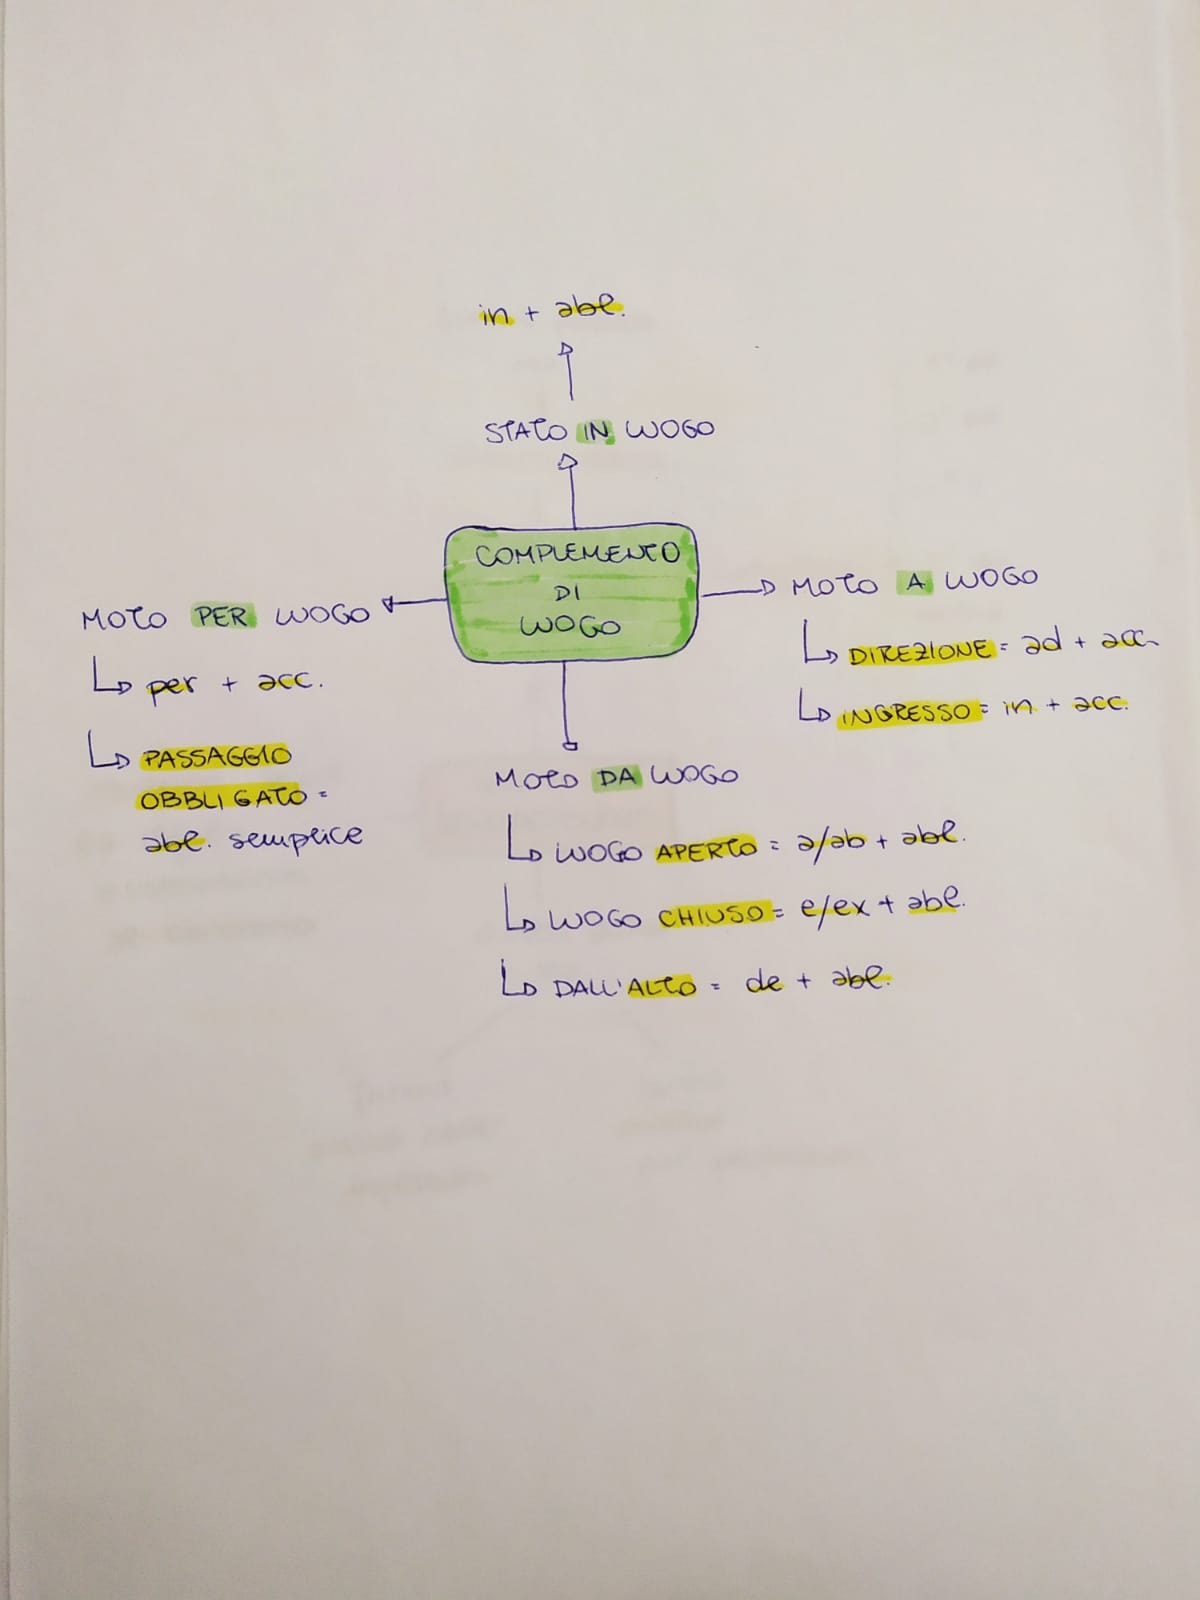 in + abl.
STATO IN LUOGO
COMPLEMENTO
DI
LUOGO
MOTO PER LUOGO
per + acc.
PASSAGGIO
OBBLIGATO =
abl. semplice
MOTO A LUOGO
DIREZIONE = ad + acc.
INGRESSO = in + acc.
MOTO DA LUOGO
LUOGO APERTO = a/ab + abl.
LUOGO CHIUSO = e/ex + abl.
DALL'ALTO = de + abl.